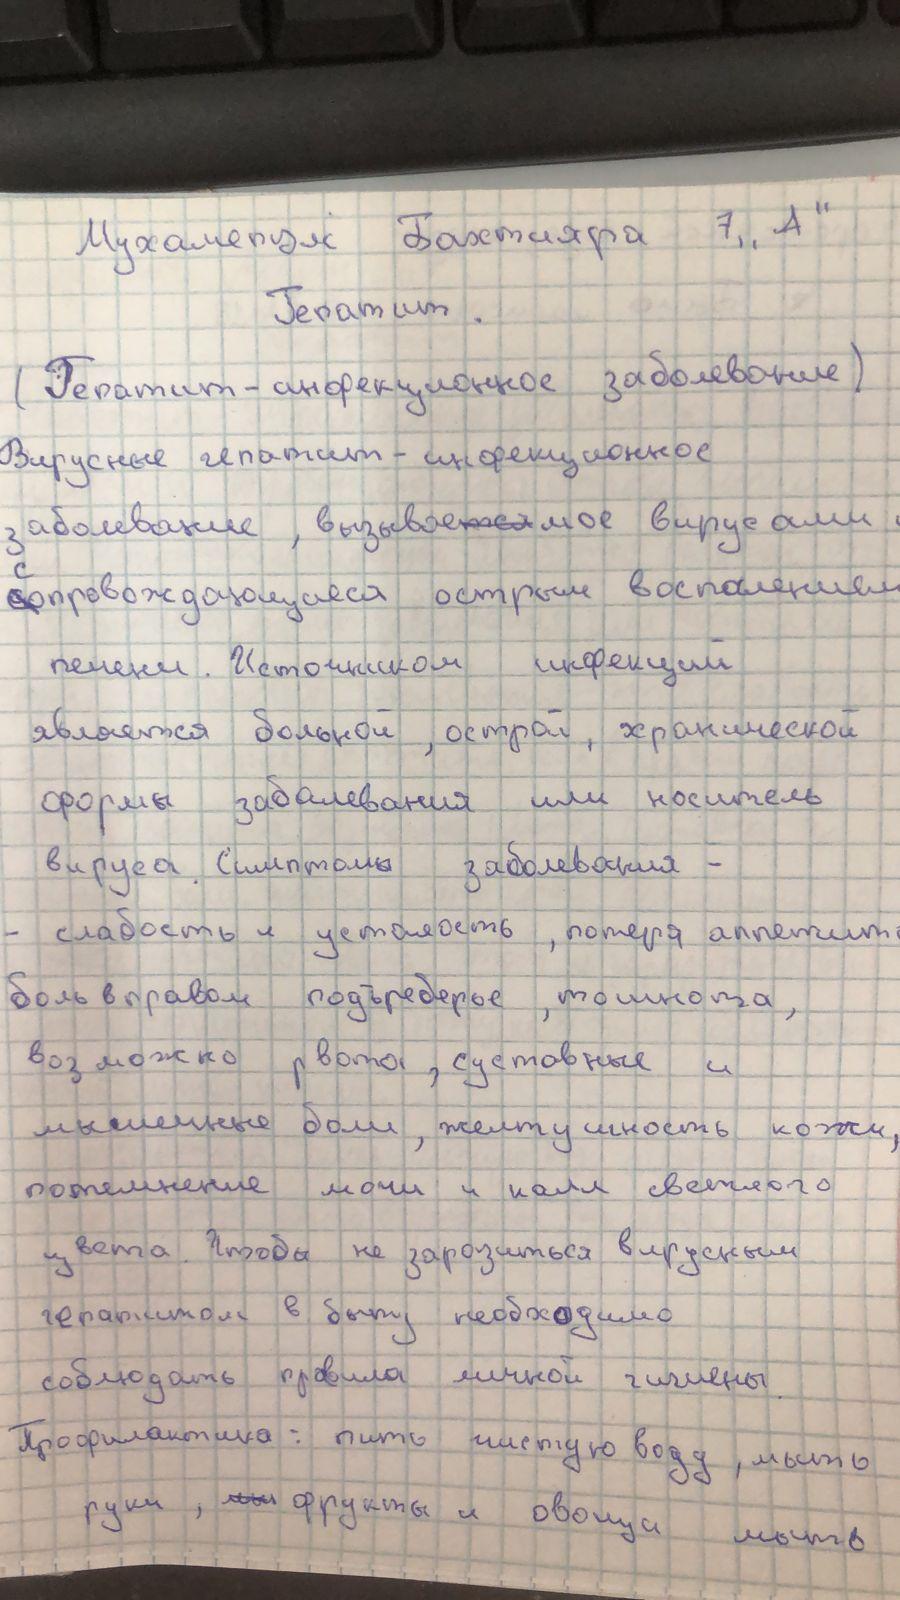 Бахтияра 7 „А"
Гепатит.
(Гепатит-инфекционное заболевание)
Вирусные гепатит-инфекционное
заболевание, вызываемое вирусами и
сопровождающиеся острым воспалением
печени. Источником инфекций
является больной, острой, хранической
формы забалевания или носитель
вируса. Симптомы заболевания -
- слабость и усталость, потеря аппетита
боль в правом подъреберье, тошнота,
возможно рвота, суставные и
мышечные боли, желтушность кожи,
потемнение мочи и калл светлого
цвета. Чтобы не заразиться вирусным
гепатитом в быту необходимо
соблюдать правила личной гигиены.
Профилактика: пить чистую воду, мыть
руки, фрукты и овощи мыть